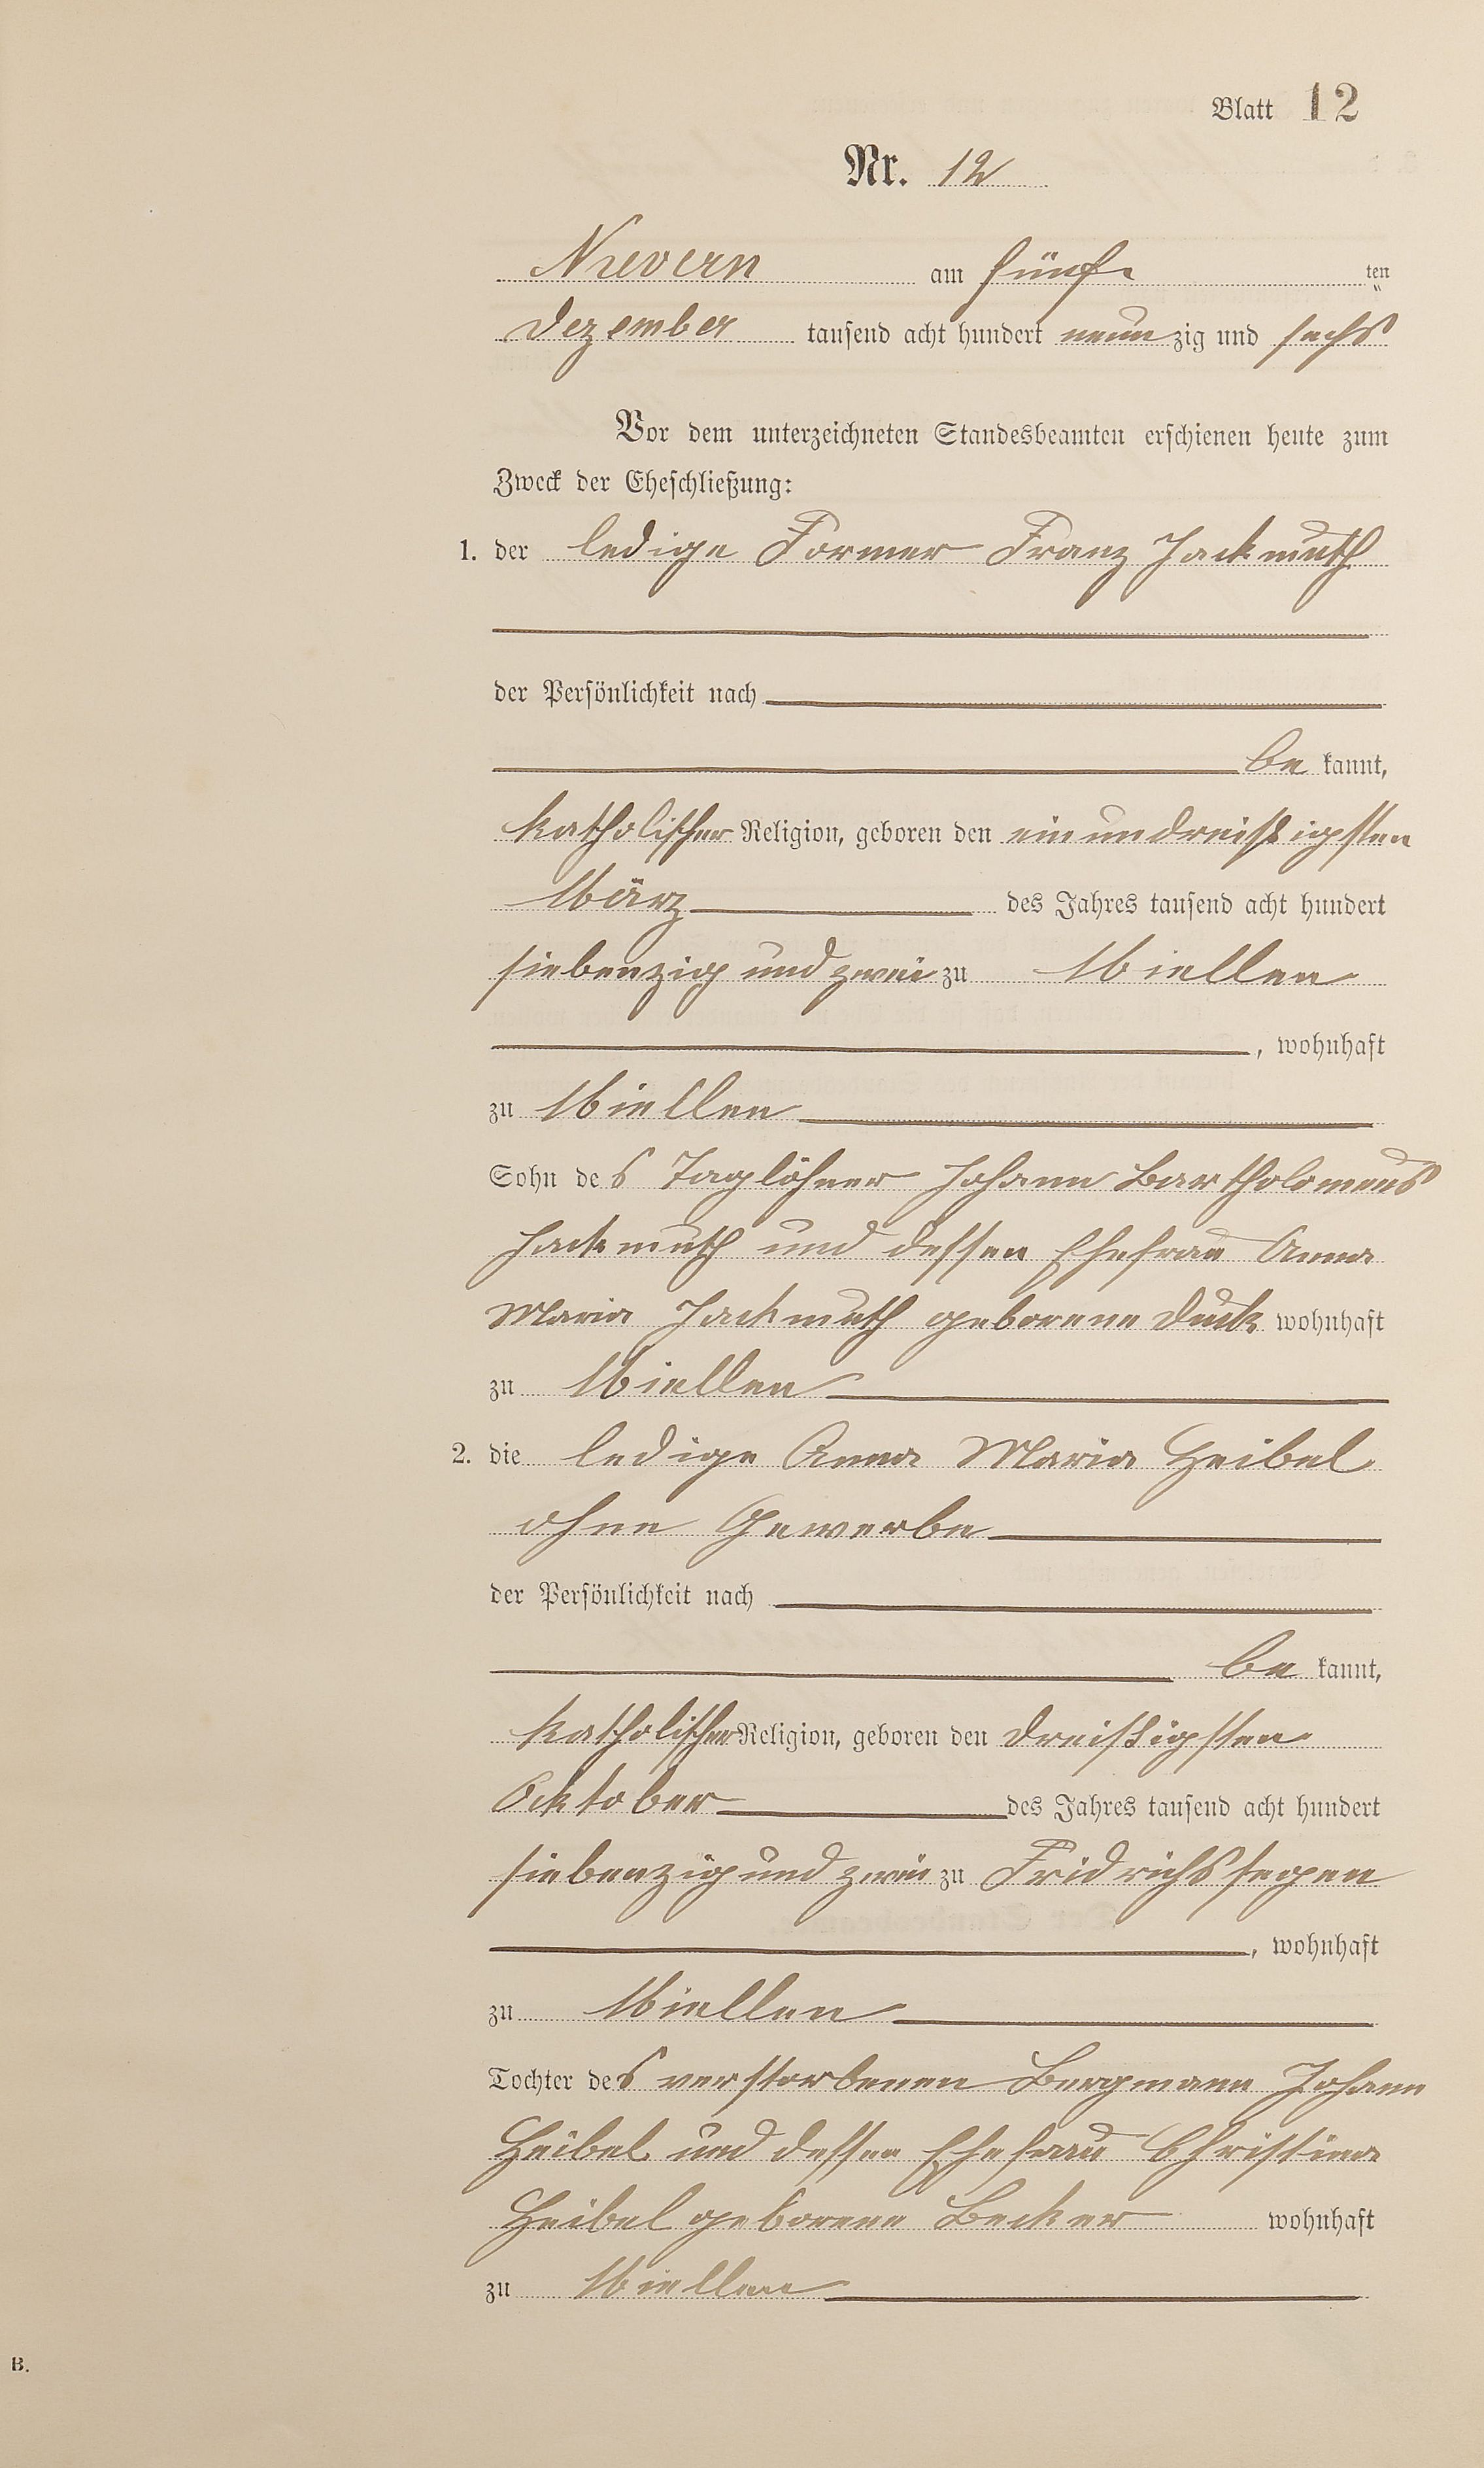 Blatt 12
Nr. 12
Nievern am fünf ten
Dezember tausend acht hundert neun zig und sechs
Vor dem unterzeichneten Standesbeamten erschienen heute zum
Zweck der Eheschließung:
1. der ledige Former Franz Jackmuth
der Persönlichkeit nach
be kannt,
katholischer Religion, geboren den einundreißigsten
März des Jahres tausend acht hundert
siebenzig und zwei zu Miellen
, wohnhaft
zu Miellen
Sohn des Taglöhner Johann Bartholomäus
Jackmuth und dessen Ehefrau Anna
Maria Jackmuth geborene Duck wohnhaft
zu Miellen
2. die ledige Anna Maria Heibel
ohne Gewerbe
der Persönlichkeit nach
be kannt,
katholischer Religion, geboren den dreißigsten
Oktober des Jahres tausend acht hundert
siebenzig und zwei zu Fridrichssegen
, wohnhaft
zu Miellen
Tochter des verstorbenen Bergmann Johann
Heibel und dessen Ehefrau Christina
Heibel geborene Becker wohnhaft
zu Miellen
B.